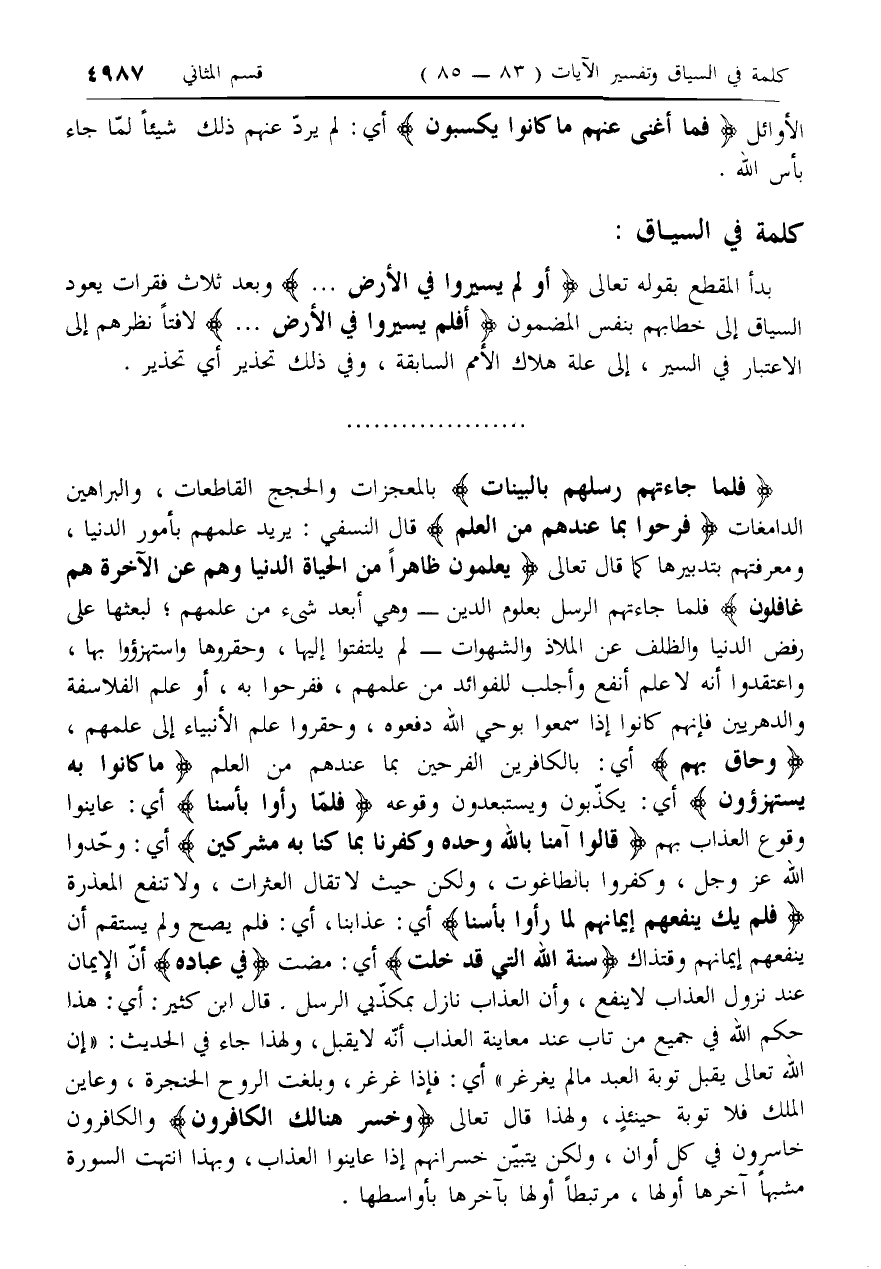 كلمة في السياق وتفسير الآيات ( ٨٣ — ٨٥ ) قسم المثاني ٤٩٨٧
الأوائل ﴿ فما أغنى عنهم ماكانوا يكسبون ﴾ أي : لم يردّ عنهم ذلك شيئاً لمّا جاء
بأس الله .
كلمة في السياق :
بدأ المقطع بقوله تعالى ﴿ أو لم يسيروا في الأرض ... ﴾ وبعد ثلاث فقرات يعود
السياق إلى خطابهم بنفس المضمون ﴿ أفلم يسيروا في الأرض ... ﴾ لافتاً نظرهم إلى
الاعتبار في السير ، إلى علة هلاك الأمم السابقة ، وفي ذلك تحذير أي تحذير .
....................
﴿ فلما جاءتهم رسلهم بالبينات ﴾ بالمعجزات والحجج القاطعات ، والبراهين
الدامغات ﴿ فرحوا بما عندهم من العلم ﴾ قال النسفي : يريد علمهم بأمور الدنيا ،
ومعرفتهم بتدبيرها كما قال تعالى ﴿ يعلمون ظاهراً من الحياة الدنيا وهم عن الآخرة هم
غافلون ﴾ فلما جاءتهم الرسل بعلوم الدين — وهي أبعد شىء من علمهم ؛ لبعثها على
رفض الدنيا والظلف عن الملاذ والشهوات — لم يلتفتوا إليها ، وحقروها واستهزؤوا بها ،
واعتقدوا أنه لاعلم أنفع وأجلب للفوائد من علمهم ، ففرحوا به ، أو علم الفلاسفة
والدهريين فإنهم كانوا إذا سمعوا بوحي الله دفعوه ، وحقروا علم الأنبياء إلى علمهم ،
﴿ وحاق بهم ﴾ أي : بالكافرين الفرحين بما عندهم من العلم ﴿ ماكانوا به
يستهزؤون ﴾ أي : يكذّبون ويستبعدون وقوعه ﴿ فلمّا رأوا بأسنا ﴾ أي : عاينوا
وقوع العذاب بهم ﴿ قالوا آمنا بالله وحده وكفرنا بما كنا به مشركين ﴾ أي : وحّدوا
الله عز وجل ، وكفروا بالطاغوت ، ولكن حيث لاتقال العثرات ، ولاتنفع المعذرة
﴿ فلم يك ينفعهم إيمانهم لما رأوا بأسنا ﴾ أي : عذابنا ، أي : فلم يصح ولم يستقم أن
ينفعهم إيمانهم وقتذاك ﴿سنة الله التي قد خلت﴾ أي : مضت ﴿في عباده﴾ أنّ الإيمان
عند نزول العذاب لاينفع ، وأن العذاب نازل بمكذّبي الرسل . قال ابن كثير : أي : هذا
حكم الله في جميع من تاب عند معاينة العذاب أنّه لايقبل ، ولهذا جاء في الحديث : «إن
الله تعالى يقبل توبة العبد مالم يغرغر » أي : فإذا غرغر ، وبلغت الروح الحنجرة ، وعاين
الملك فلا توبة حينئذٍ ، ولهذا قال تعالى ﴿وخسر هنالك الكافرون﴾ والكافرون
خاسرون في كل أوان ، ولكن يتبيّن خسرانهم إذا عاينوا العذاب ، وبهذا انتهت السورة
مشبهاً آخرها أولها ، مرتبطاً أولها بآخرها بأواسطها .